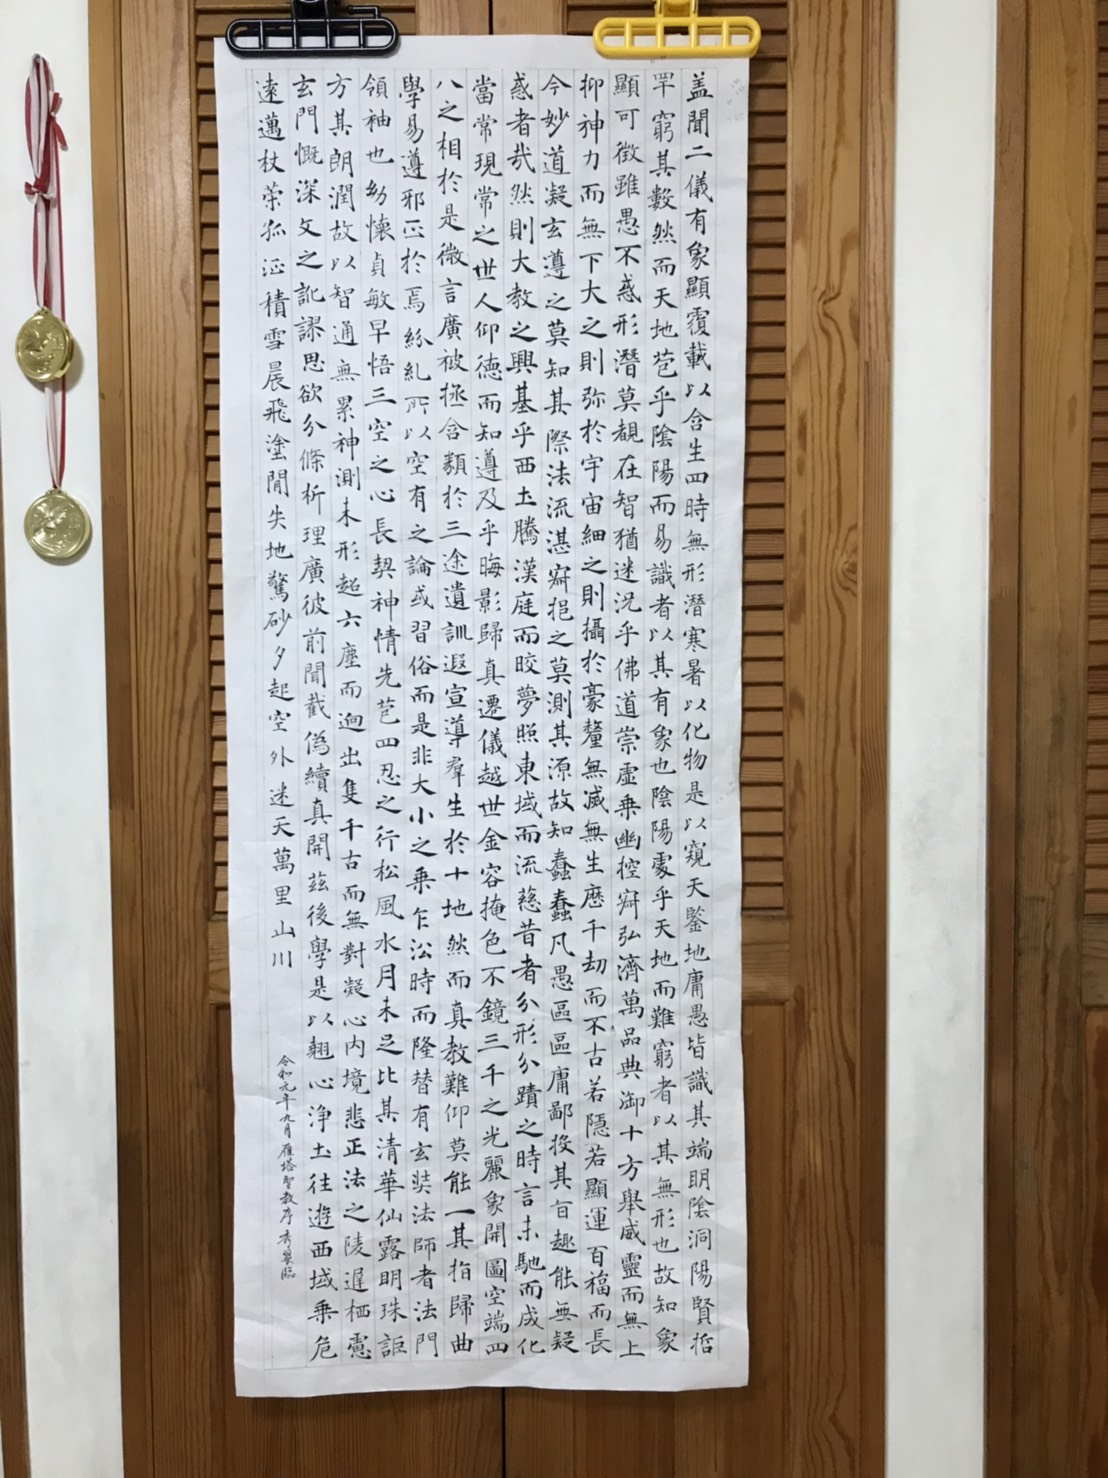 盖聞二儀有象顯覆載以含生四時無形潛寒暑以化物是以窺天鑒地庸愚皆識其端明陰洞陽賢哲
罕窮其數然而天地苞乎陰陽而易識者以其有象也陰陽處乎天地而難窮者以其無形也故知象
顯可徵雖愚不惑形潛莫覩在智猶迷況乎佛道崇虛乗幽控寂弘濟萬品典御十方舉威靈而無上
抑神力而無下大之則弥於宇宙細之則攝於豪釐無滅無生歷千劫而不古若隱若顯運百福而長
今妙道凝玄遵之莫知其際法流湛寂挹之莫測其源故知蠢蠢凡愚區區庸鄙投其旨趣能無疑
惑者哉然則大教之興基乎西土騰漢庭而皎夢照東域而流慈昔者分形分蹟之時言未馳而成化
當常現常之世人仰德而知遵及乎晦影歸真遷儀越世金容掩色不鏡三千之光麗象開圖空端四
八之相於是微言廣被拯含類於三途遺訓遐宣導羣生於十地然而真教難仰莫能一其指歸曲
學易遵邪正於焉紛糺所以空有之論或習俗而是非大小之乗乍沿時而隆替有玄奘法師者法門
領袖也幼懷貞敏早悟三空之心長契神情先苞四忍之行松風水月未足比其清華仙露明珠詎
方其朗潤故以智通無累神測未形超六塵而迥出隻千古而無對凝心内境悲正法之陵遲栖慮
玄門慨深文之訛謬思欲分條析理廣彼前聞截偽續真開茲後學是以翹心淨土往遊西域乗危
遠邁杖策孤征積雪晨飛塗閒失地驚砂夕起空外迷天萬里山川
令和元年九月雁塔聖教序秀臨